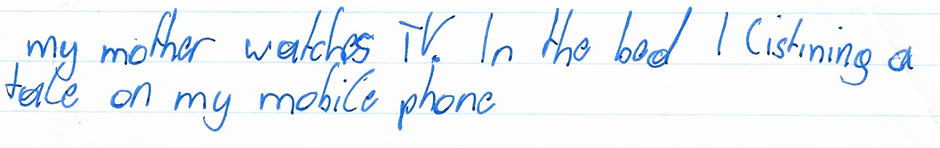 my mother watches TV. In the bed I listining a
tale on my mobile phone